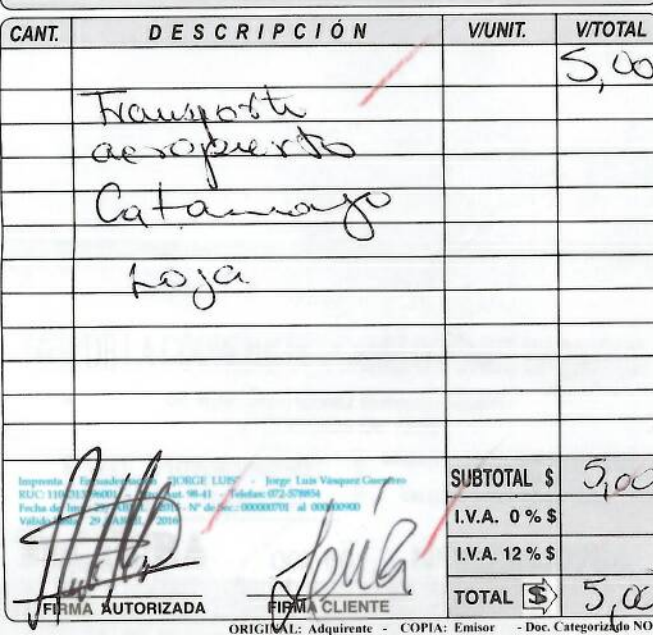 CANT. DESCRIPCIÓN V/UNIT. V/TOTAL
5,00
Transporte
aeropuerto
Catamayo
Loja
Imprenta y Encuadernación "JORGE LUIS" - Jorge Luis Vásquez Guerrero
RUC: Aut. 98-41 - Telefax: 072-578854
Fecha de Imp. 29 / ABRIL / 2015 - Nº de Sec.: 000000701 al 000000900
Válido hasta 29 / ABRIL / 2016
SUBTOTAL $ 5,00
I.V.A. 0 % $
I.V.A. 12 % $
TOTAL $ 5,00
FIRMA AUTORIZADA FIRMA CLIENTE
ORIGINAL: Adquirente - COPIA: Emisor - Doc. Categorizado NO